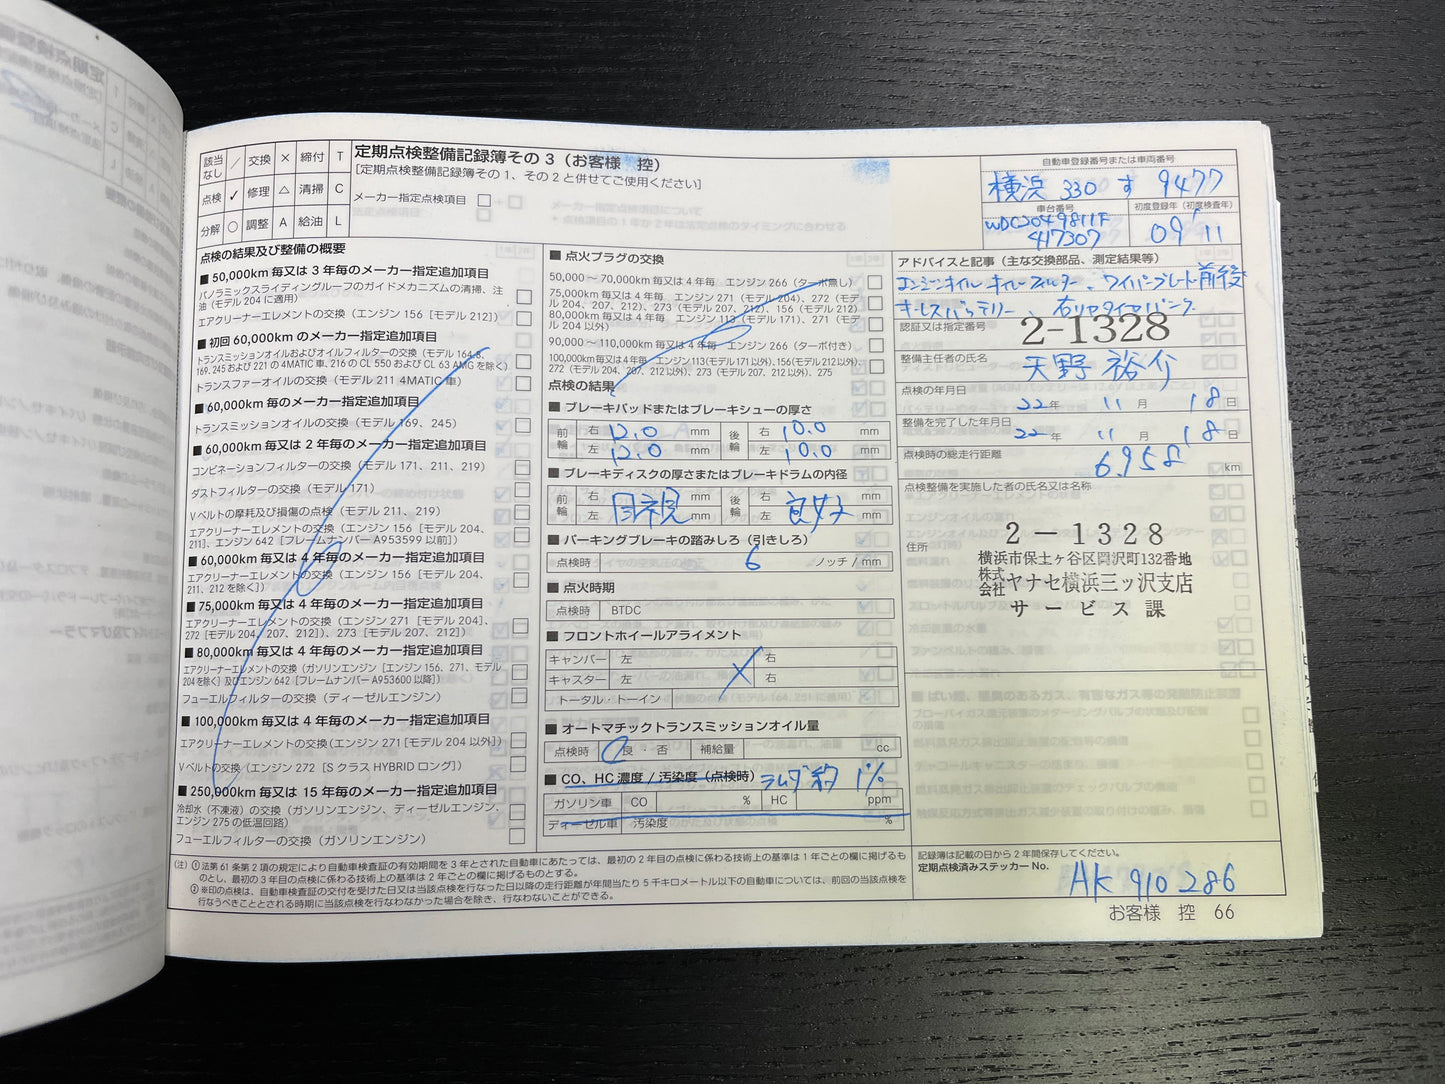 該当なし ／ 交換 × 締付 T
点検 ✓ 修理 △ 清掃 C
分解 ○ 調整 A 給油 L
定期点検整備記録簿その３（お客様 控）
[定期点検整備記録簿その１、その２と併せてご使用ください]
メーカー指定点検項目
自動車登録番号または車両番号
横浜 330 す 9477
車台番号
WDC2049811F
417307
初度登録年（初度検査年）
09 11
点検の結果及び整備の概要
■ 50,000km 毎又は 3 年毎のメーカー指定追加項目
パノラミックスライディングルーフのガイドメカニズムの清掃、注油（モデル 204 に適用）
エアクリーナーエレメントの交換（エンジン 156 [モデル 212]）
■ 初回 60,000km のメーカー指定追加項目
トランスミッションオイルおよびオイルフィルターの交換（モデル 164.8、
169、245 および 221 の 4MATIC 車、216 の CL 550 および CL 63 AMG を除く）
トランスファーオイルの交換（モデル 211 4MATIC 車）
■ 60,000km 毎のメーカー指定追加項目
トランスミッションオイルの交換（モデル 169、245）
■ 60,000km 毎又は 2 年毎のメーカー指定追加項目
コンビネーションフィルターの交換（モデル 171、211、219）
ダストフィルターの交換（モデル 171）
Vベルトの摩耗及び損傷の点検（モデル 211、219）
エアクリーナーエレメントの交換（エンジン 156 [モデル 204、
211]、エンジン 642 [フレームナンバー A953599 以前]）
■ 60,000km 毎又は 4 年毎のメーカー指定追加項目
エアクリーナーエレメントの交換（エンジン 156 [モデル 204、
211、212 を除く]）
■ 75,000km 毎又は 4 年毎のメーカー指定追加項目
エアクリーナーエレメントの交換（エンジン 271 [モデル 204]、
272 [モデル 204、207、212]）、273 [モデル 207、212]）
■ 80,000km 毎又は 4 年毎のメーカー指定追加項目
エアクリーナーエレメントの交換（ガソリンエンジン [エンジン 156、271、モデル
204を除く] 及びエンジン 642 [フレームナンバー A953600 以降]）
フューエルフィルターの交換（ディーゼルエンジン）
■ 100,000km 毎又は 4 年毎のメーカー指定追加項目
エアクリーナーエレメントの交換（エンジン 271 [モデル 204 以外]）
Vベルトの交換（エンジン 272 [S クラス HYBRID ロング]）
■ 250,000km 毎又は 15 年毎のメーカー指定追加項目
冷却水（不凍液）の交換（ガソリンエンジン、ディーゼルエンジン、
エンジン 275 の低温回路）
フューエルフィルターの交換（ガソリンエンジン）
■ 点火プラグの交換
50,000 ～ 70,000km 毎又は 4 年毎 エンジン 266（ターボ無し）
75,000km 毎又は 4 年毎 エンジン 271（モデル 204）、272（モデ
ル 204、207、212）、273（モデル 207、212）、156（モデル 212）
80,000km 毎又は 4 年毎 エンジン 113（モデル 171）、271（モデ
ル 204 以外）
90,000 ～ 110,000km 毎又は 4 年毎 エンジン 266（ターボ付き）
100,000km 毎又は 4 年毎 エンジン 113(モデル 171 以外)、156(モデル 212 以外)、
272（モデル 204、207、212 以外）、273（モデル 207、212 以外）、275
点検の結果
■ ブレーキパッドまたはブレーキシューの厚さ
前輪 右 12.0 mm 後輪 右 10.0 mm
左 12.0 mm 左 10.0 mm
■ ブレーキディスクの厚さまたはブレーキドラムの内径
前輪 右 mm 後輪 右 mm
左 目視 mm 左 良好 mm
■ パーキングブレーキの踏みしろ（引きしろ）
点検時 6 ノッチ / mm
■ 点火時期
点検時 BTDC
■ フロントホイールアライメント
キャンバー 左 右
キャスター 左 右
トータル・トーイン
■ オートマチックトランスミッションオイル量
点検時 良 ・ 否 補給量 cc
■ CO、HC 濃度 / 汚染度（点検時） ラムダ 約 1%
ガソリン車 CO % HC ppm
ディーゼル車 汚染度 %
アドバイスと記事（主な交換部品、測定結果等）
エンジンオイル オイルフィルター、ワイパーブレード前後
キーレスバッテリー、右リヤタイヤパンク
認証又は指定番号
2-1328
整備主任者の氏名
天野 裕介
点検の年月日
22 年 11 月 18 日
整備を完了した年月日
22 年 11 月 18 日
点検時の総走行距離
6,958 km
点検整備を実施した者の氏名又は名称
住所
2－1328
横浜市保土ヶ谷区岡沢町132番地
株式会社 ヤナセ横浜三ッ沢支店
サービス課
（注）① 法第 61 条第 2 項の規定により自動車検査証の有効期間を 3 年とされた自動車にあたっては、最初の 2 年目の点検に係わる技術上の基準は 1 年ごとの欄に掲げるも
のとし、最初の 3 年目の点検に係わる技術上の基準は 2 年ごとの欄に掲げるものとする。
② ※印の点検は、自動車検査証の交付を受けた日又は当該点検を行なった日以降の走行距離が年間当たり 5 千キロメートル以下の自動車については、前回の当該点検を
行なうべきこととされる時期に当該点検を行なわなかった場合を除き、行なわないことができる。
記録簿は記載の日から 2 年間保存してください。
定期点検済みステッカー No.
AK 910286
お客様 控 66